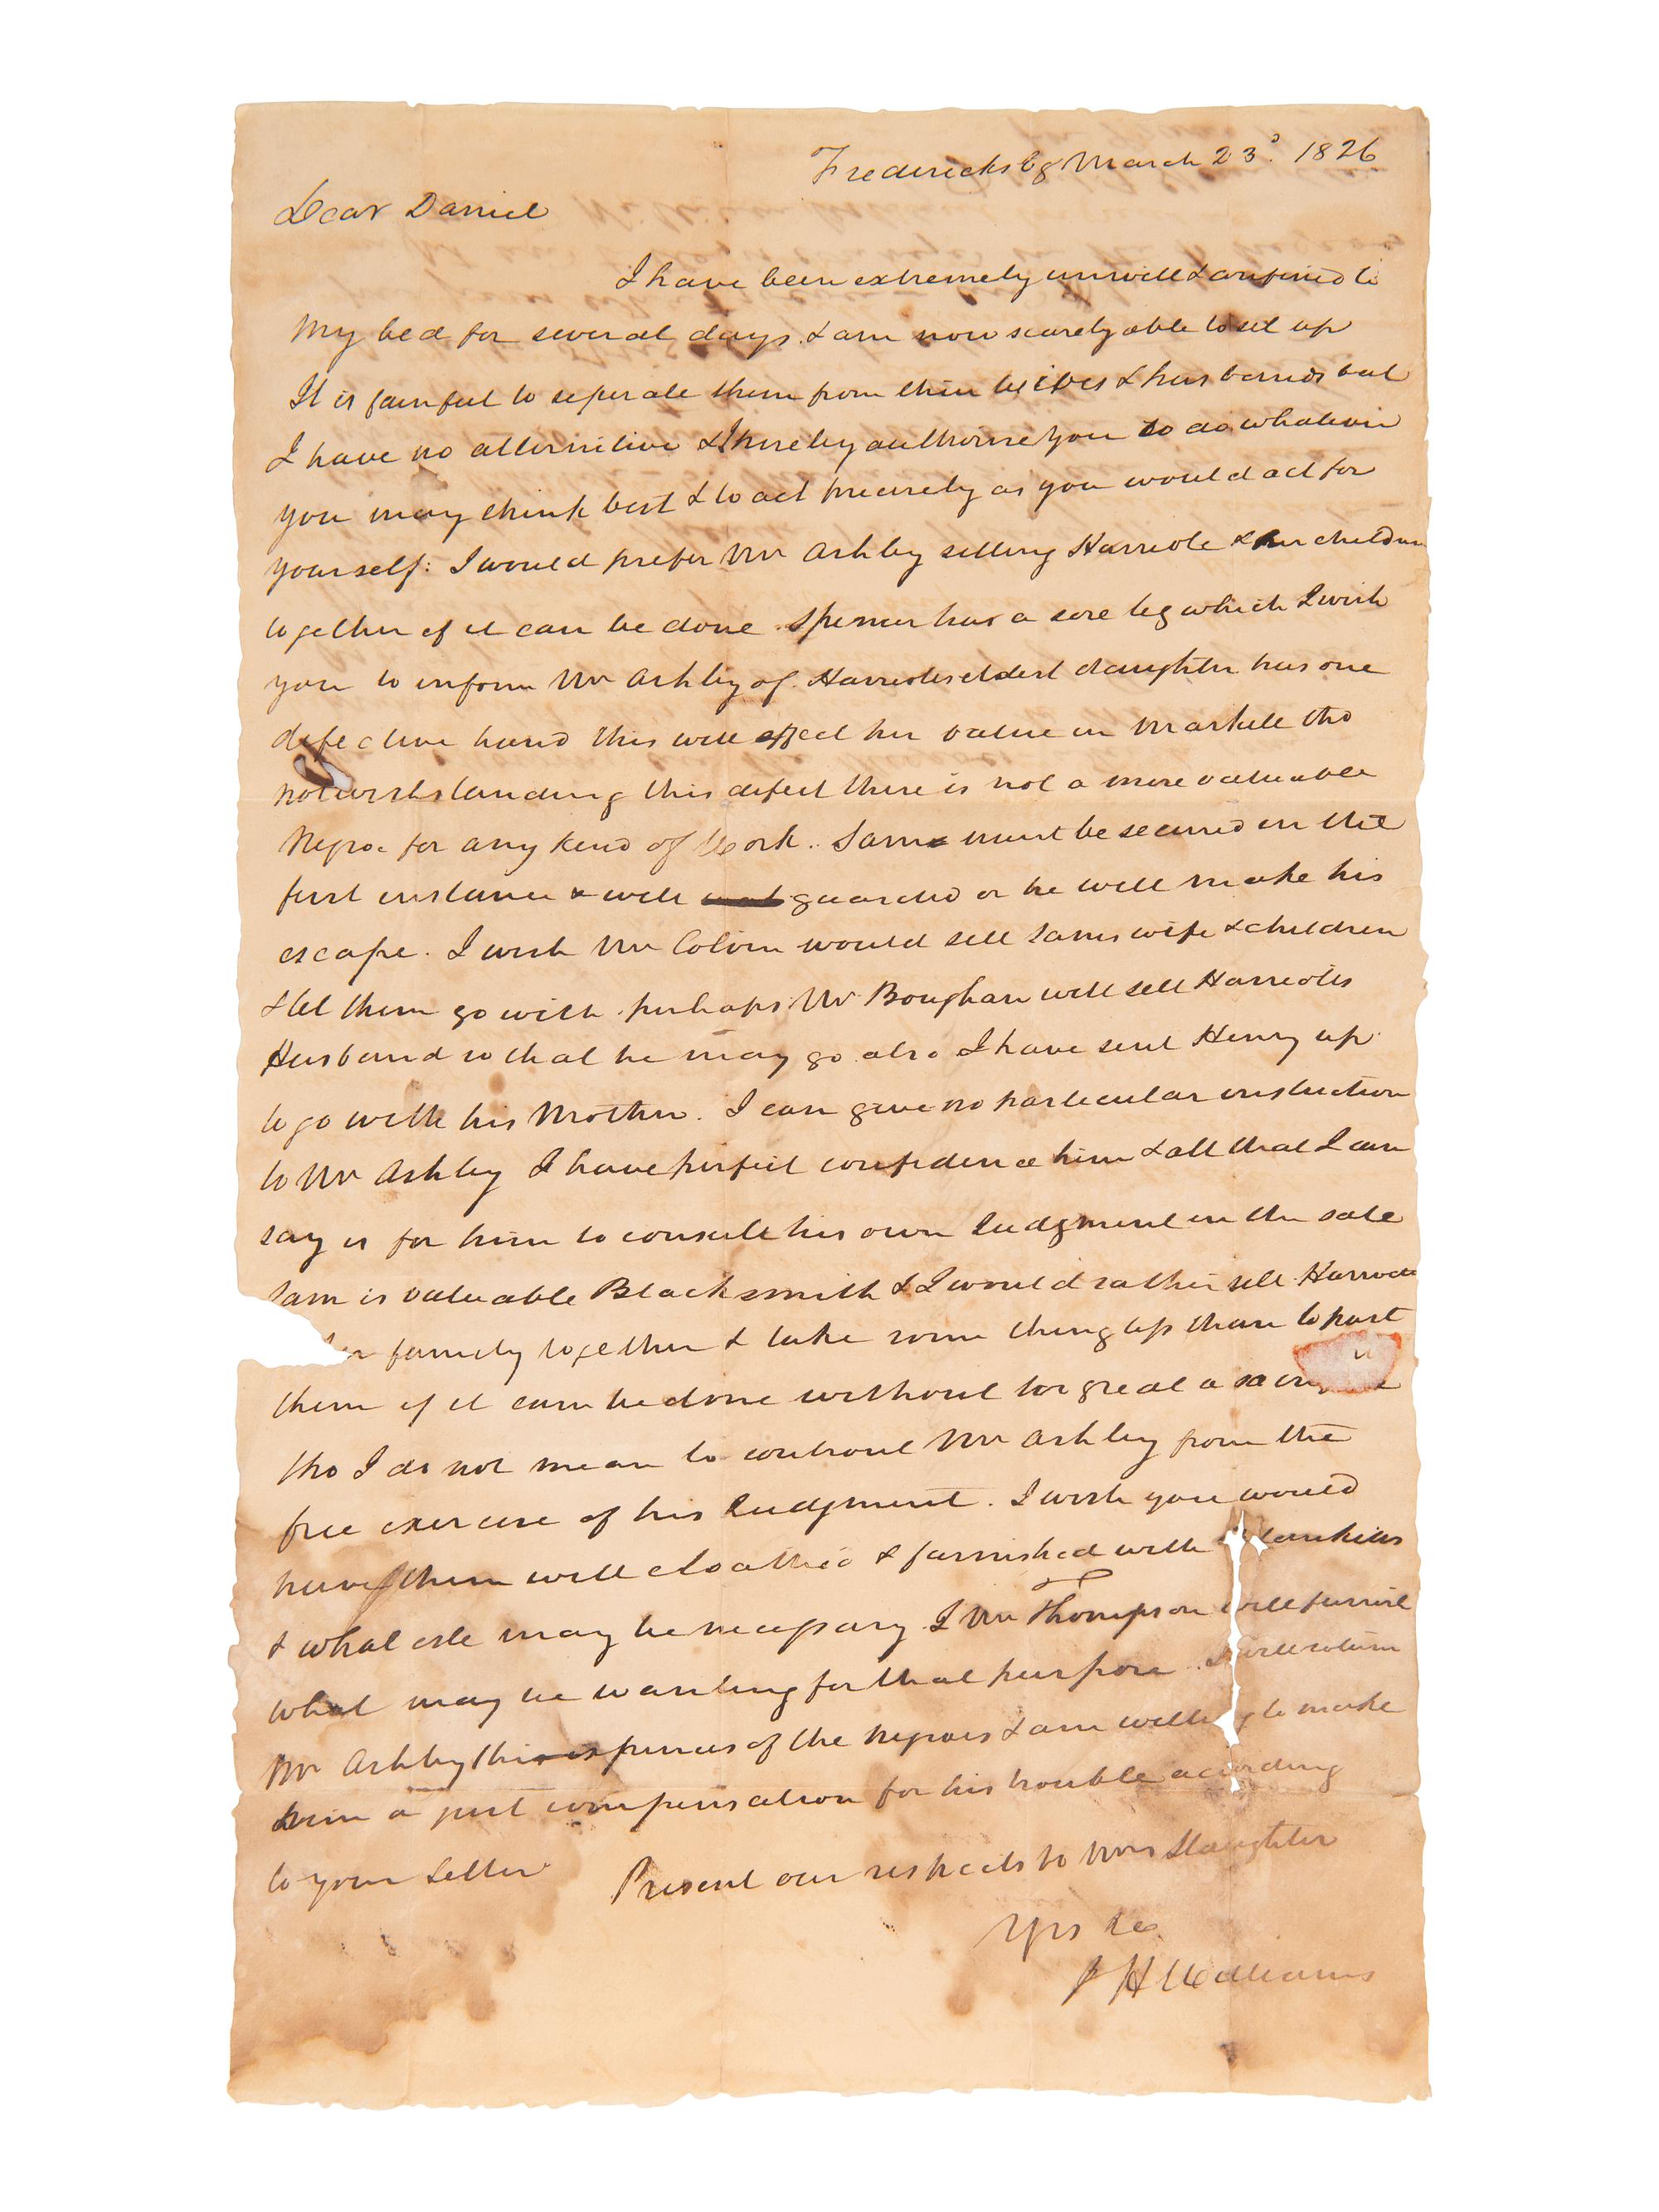 Fredericksbg March 23d. 1826
Dear Daniel
I have been extremely unwell & confined to
my bed for several days. & am now scarcely able to set up
It is painful to seperate them from their wives & husbands but
I have no alternitive & I hereby authorise you to do whatever
you may think best & to act precisely as you would act for
yourself: I would prefer Mr Ashby selling Harriote & her children
together if it can be done. Spencer has a sore leg which I wish
you to inform Mr Ashby of. Harriotes eldest daughter has one
defective hand this will effect her value in Markett tho
notwithstanding this defect there is not a more valuable
Negroe for any kind of Work. Sam must be secured in the
first instance & well guarded or he will make his
escape. I wish Mr Colvin would sell Sams wife & children
& let them go with. perhaps Mr Boughan will sell Harriotes
Husband so that he may go also I have sent Henry up
to go with his Mother. I can give no particular instuction
to Mr Ashby I have perfect confidence him & all that I can
say is for him to consult his own Judgment in the sale
Sam is valuable Blacksmith & I would rather sell Harriote
family together & take some thing less than to part
them if it can be done without too great a
tho I do not mean to controul Mr Ashby from the
free exercise of his Judgment. I wish you would
have them well cloathed & furnished with blankets
& what else may be necessary I Mr Thompson will furnish
what may be wanting for that purpose. I will return
Mr Ashby the expences of the Negroes & am willing to make
him a just compensation for his trouble according
to your Letter Present our respects to Mrs Slaughter
Yrs &c
J H Williams